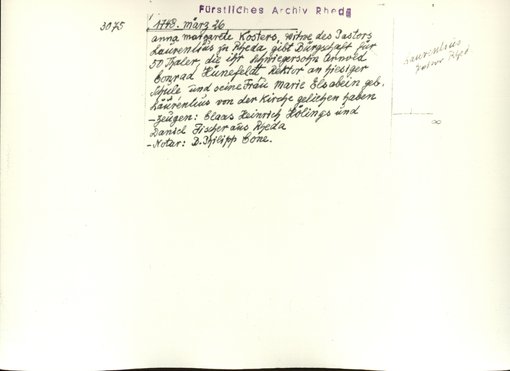 Fürstliches Archiv Rheda
3075
1748. März 26
Anna Margarete Kösters, witwe des Pastors
Laurentius zu Rheda gibt Bürgschaft für
50 Thaler die ihr Schwiegersohn Arnold
Conrad Hünefeldt Rektor an hiesiger
Schule und seine Frau Marie Elsabein geb.
Laurentius von der Kirche geliehen haben
- Zeugen: Claas Heinrich Hölings und
Daniel Fischer aus Rheda
- Notar: D. Philipp Cone.
Laurentius